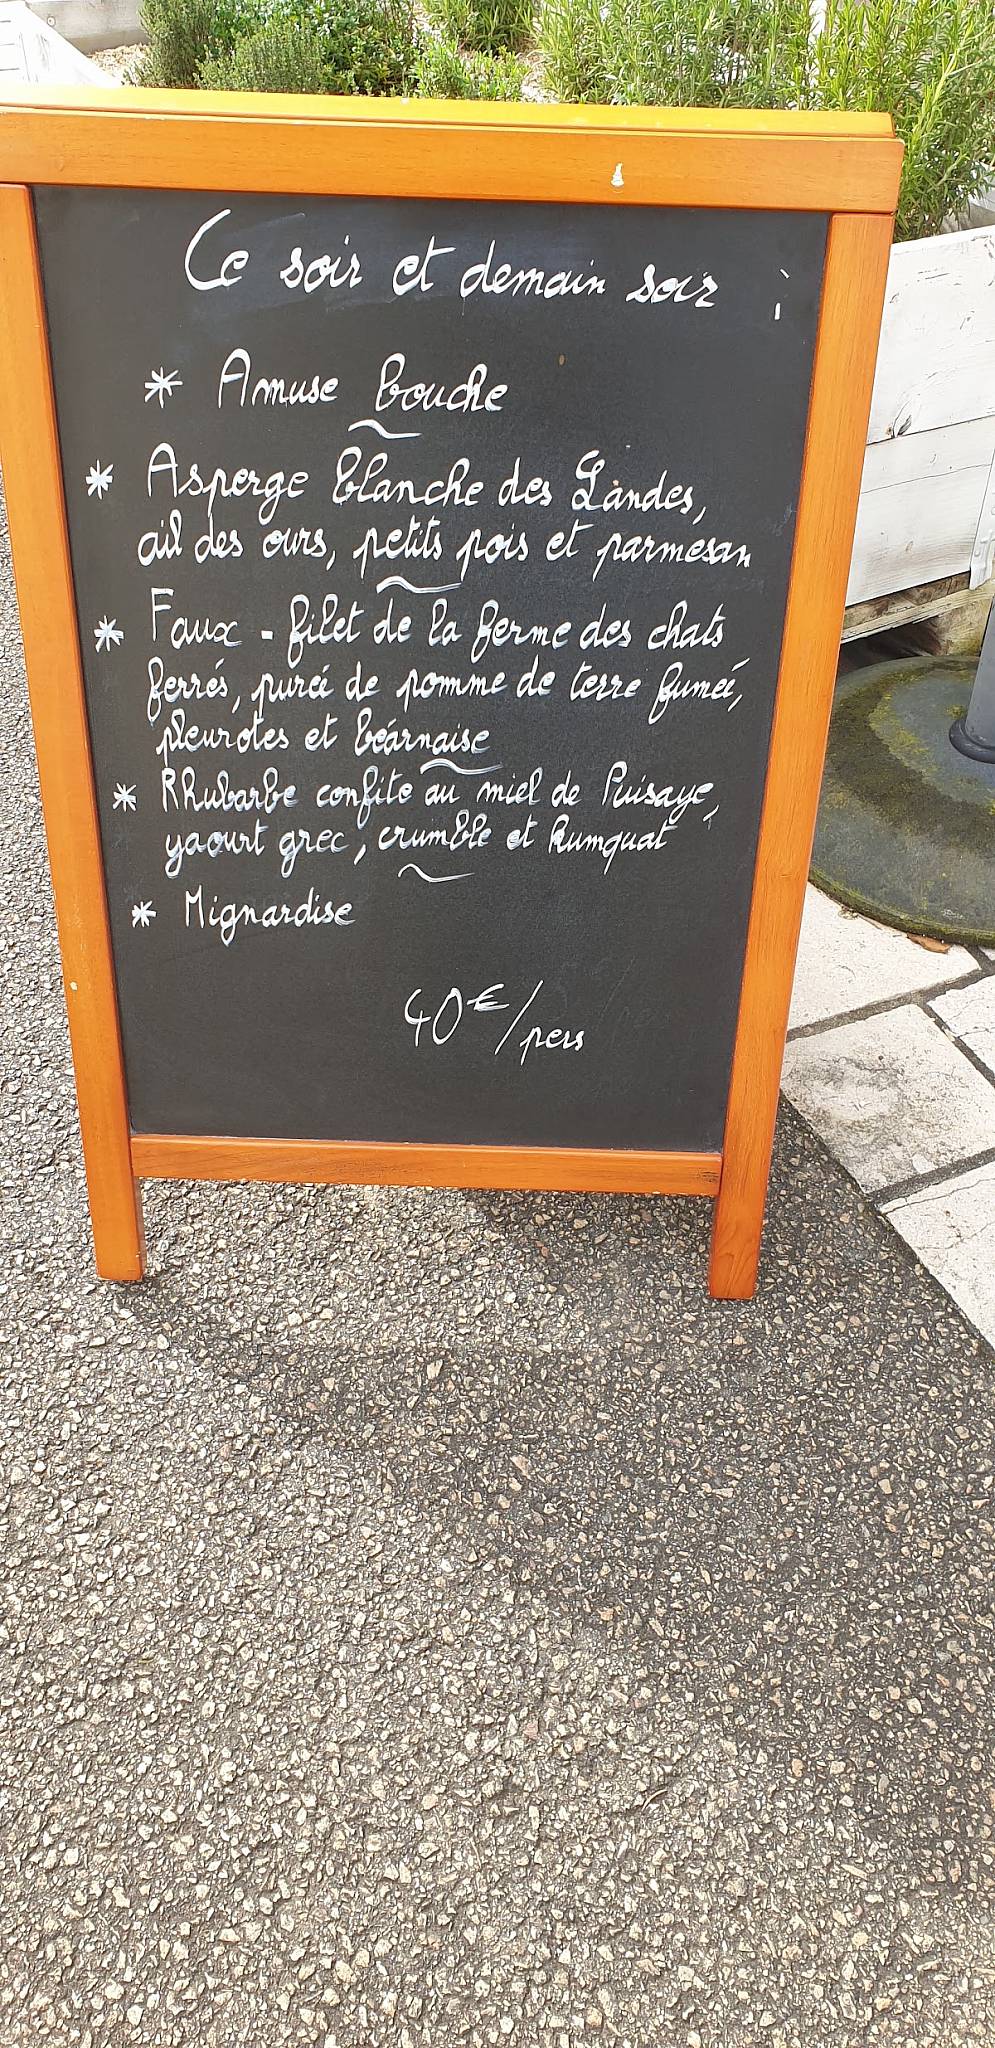 Ce soir et demain soir :
* Amuse bouche
* Asperge blanche des Landes,
ail des ours, petits pois et parmesan
* Faux-filet de la ferme des chats
ferrés, purée de pomme de terre fumée,
pleurotes et béarnaise
* Rhubarbe confite au miel de Puisaye,
yaourt grec, crumble et kumquat
* Mignardise
40€/pers